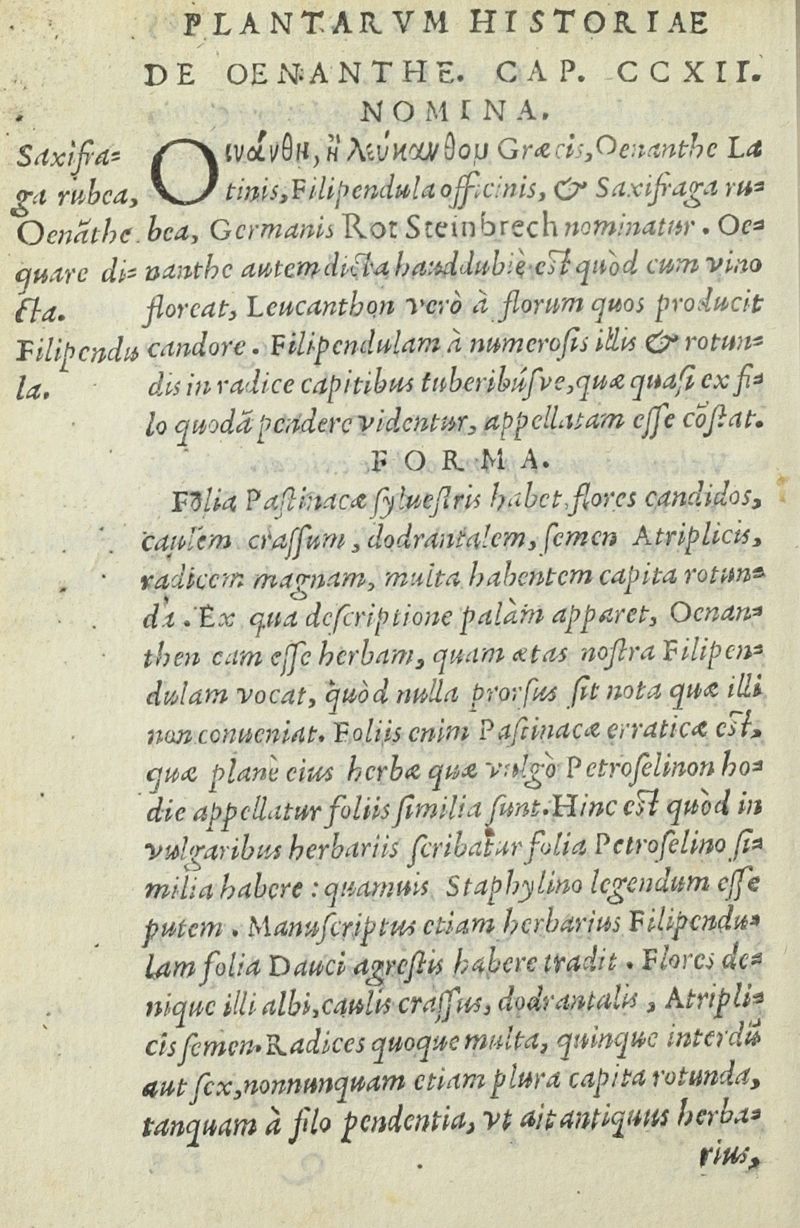 PLANTARVM HISTORIAE
DE OENANTHE. CAP. CCXII.
NOMINA.
Saxifra=
ga rubea,
Oenãthe
quare di=
cta.
Filipendu
la.
Οἰνάνθη, ἢ λεύκανθον Græcis, Oenanthe La
tinis, Filipendula officinis, & Saxifraga ru=
bea, Germanis Rot Steinbrech nominatur. Oe=
nanthe autem dicta hauddubiè est quòd cum vino
floreat, Leucanthon verò à florum quos producit
candore. Filipendulam à numerosis illis & rotun=
dis in radice capitibus tuberibúsve, quæ quasi ex fi=
lo quodã pendere videntur, appellatam esse cõstat.
FORMA.
Folia Pastinacæ syluestris habet, flores candidos,
caulem crassum, dodrantalem, semen Atriplicis,
radicem magnam, multa habentem capita rotun=
da. Ex qua descriptione palàm apparet, Oenan=
then eam esse herbam, quam ætas nostra Filipen=
dulam vocat, quòd nulla prorsus sit nota quæ illi
non conueniat. Foliis enim Pastinacæ erraticæ est,
quæ planè eius herbæ quæ vulgò Petroselinon ho=
die appellatur foliis similia sunt. Hinc est quòd in
vulgaribus herbariis scribatur folia Petroselino si=
milia habere: quamuis Staphylino legendum esse
putem. Manuscriptus etiam herbarius Filipendu=
lam folia Dauci agrestis habere tradit. Flores de=
nique illi albi, caulis crassus, dodrantalis, Atripli=
cis semen. Radices quoque multa, quinque interdũ
aut sex, nonnunquam etiam plura capita rotunda,
tanquam à filo pendentia, vt ait antiquus herba=
rius,